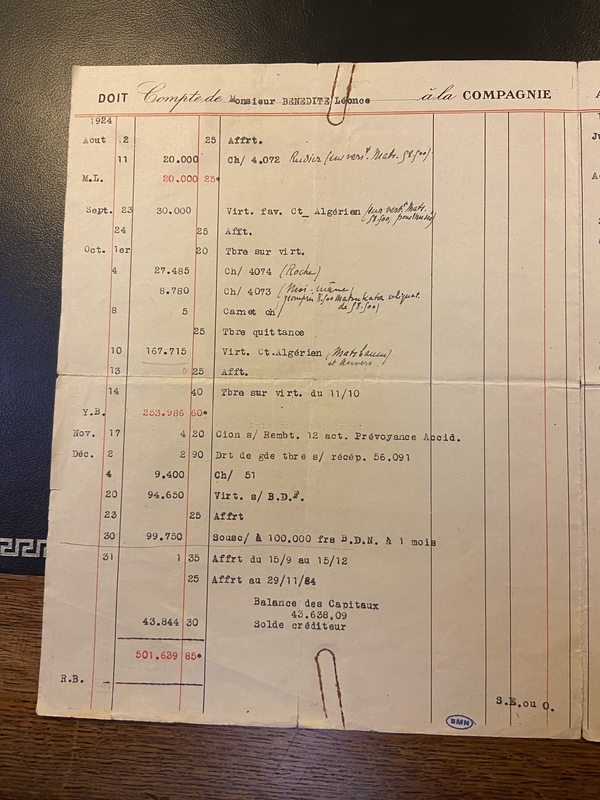 DOIT Compte de Monsieur BENEDITE Léonce à la COMPAGNIE
1924
Aout 2 25 Affrt.
11 20.000 Ch/ 4.072 Rudier (sur versт Mats. 58.500)
M.L. 20.000 25*
Sept. 23 30.000 Virt. fav. Ct_ Algérien (sur vert Mats.
58.500, pour Musée)
24 25 Afft.
Oct. 1er 20 Tbre sur virt.
4 27.485 Ch/ 4074 (Roche)
8.780 Ch/ 4073 (Moi-même
y compris 8.500 Matsukata reliquat
8 5 Carnet ch/ de 58.500)
25 Tbre quittance
10 167.715 Virt. Ct.Algérien (Mats
et Anvers
13 25 Afft.
14 40 Tbre sur virt. du 11/10
Y.B. 253.986 60*
Nov. 17 4 20 Cion s/ Rembt. 12 act. Prévoyance Accid.
Déc. 2 2 90 Drt de gde tbre s/ récép. 56.091
4 9.400 Ch/ 51
20 94.650 Virt. s/ B.D.N.
23 25 Affrt
30 99.750 Sousc/ à 100.000 frs B.D.N. à 1 mois
31 1 35 Affrt du 15/9 au 15/12
25 Affrt au 29/11/84
Balance des Capitaux
43.638,09
43.844 30 Solde créditeur
501.639 85*
R.B.
S.E.ou O.
BMN